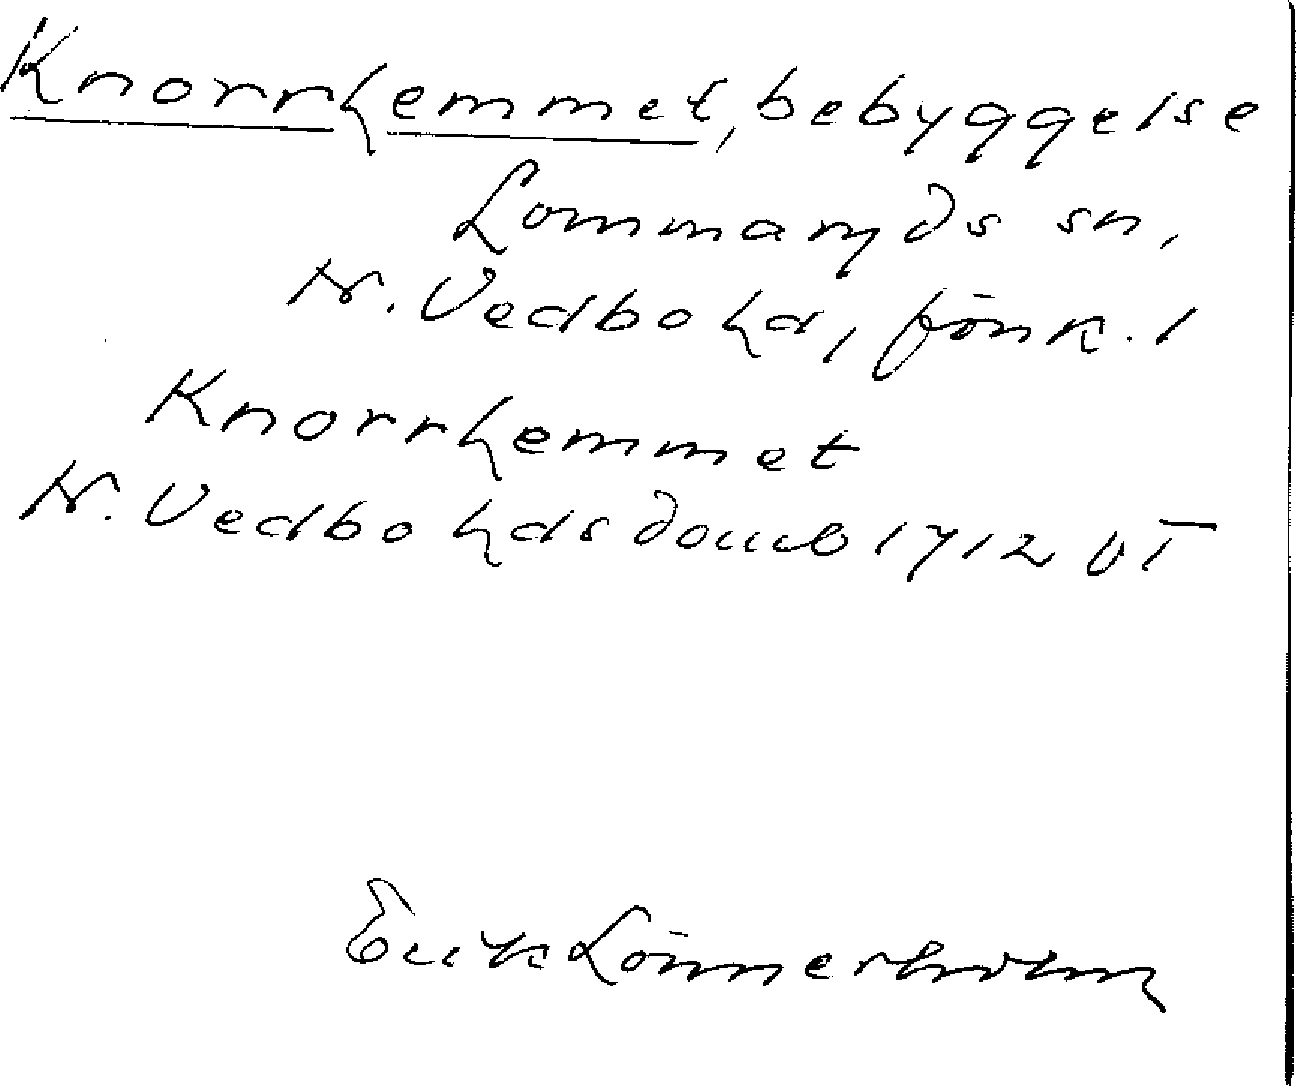 Knorrhemmet, bebyggelse
Lommaryds sn,
N. Vedbo hd, Jönk. l
Knorrhemmet
N. Vedbo hds domb 1712 vt
Erik Lönnerholm